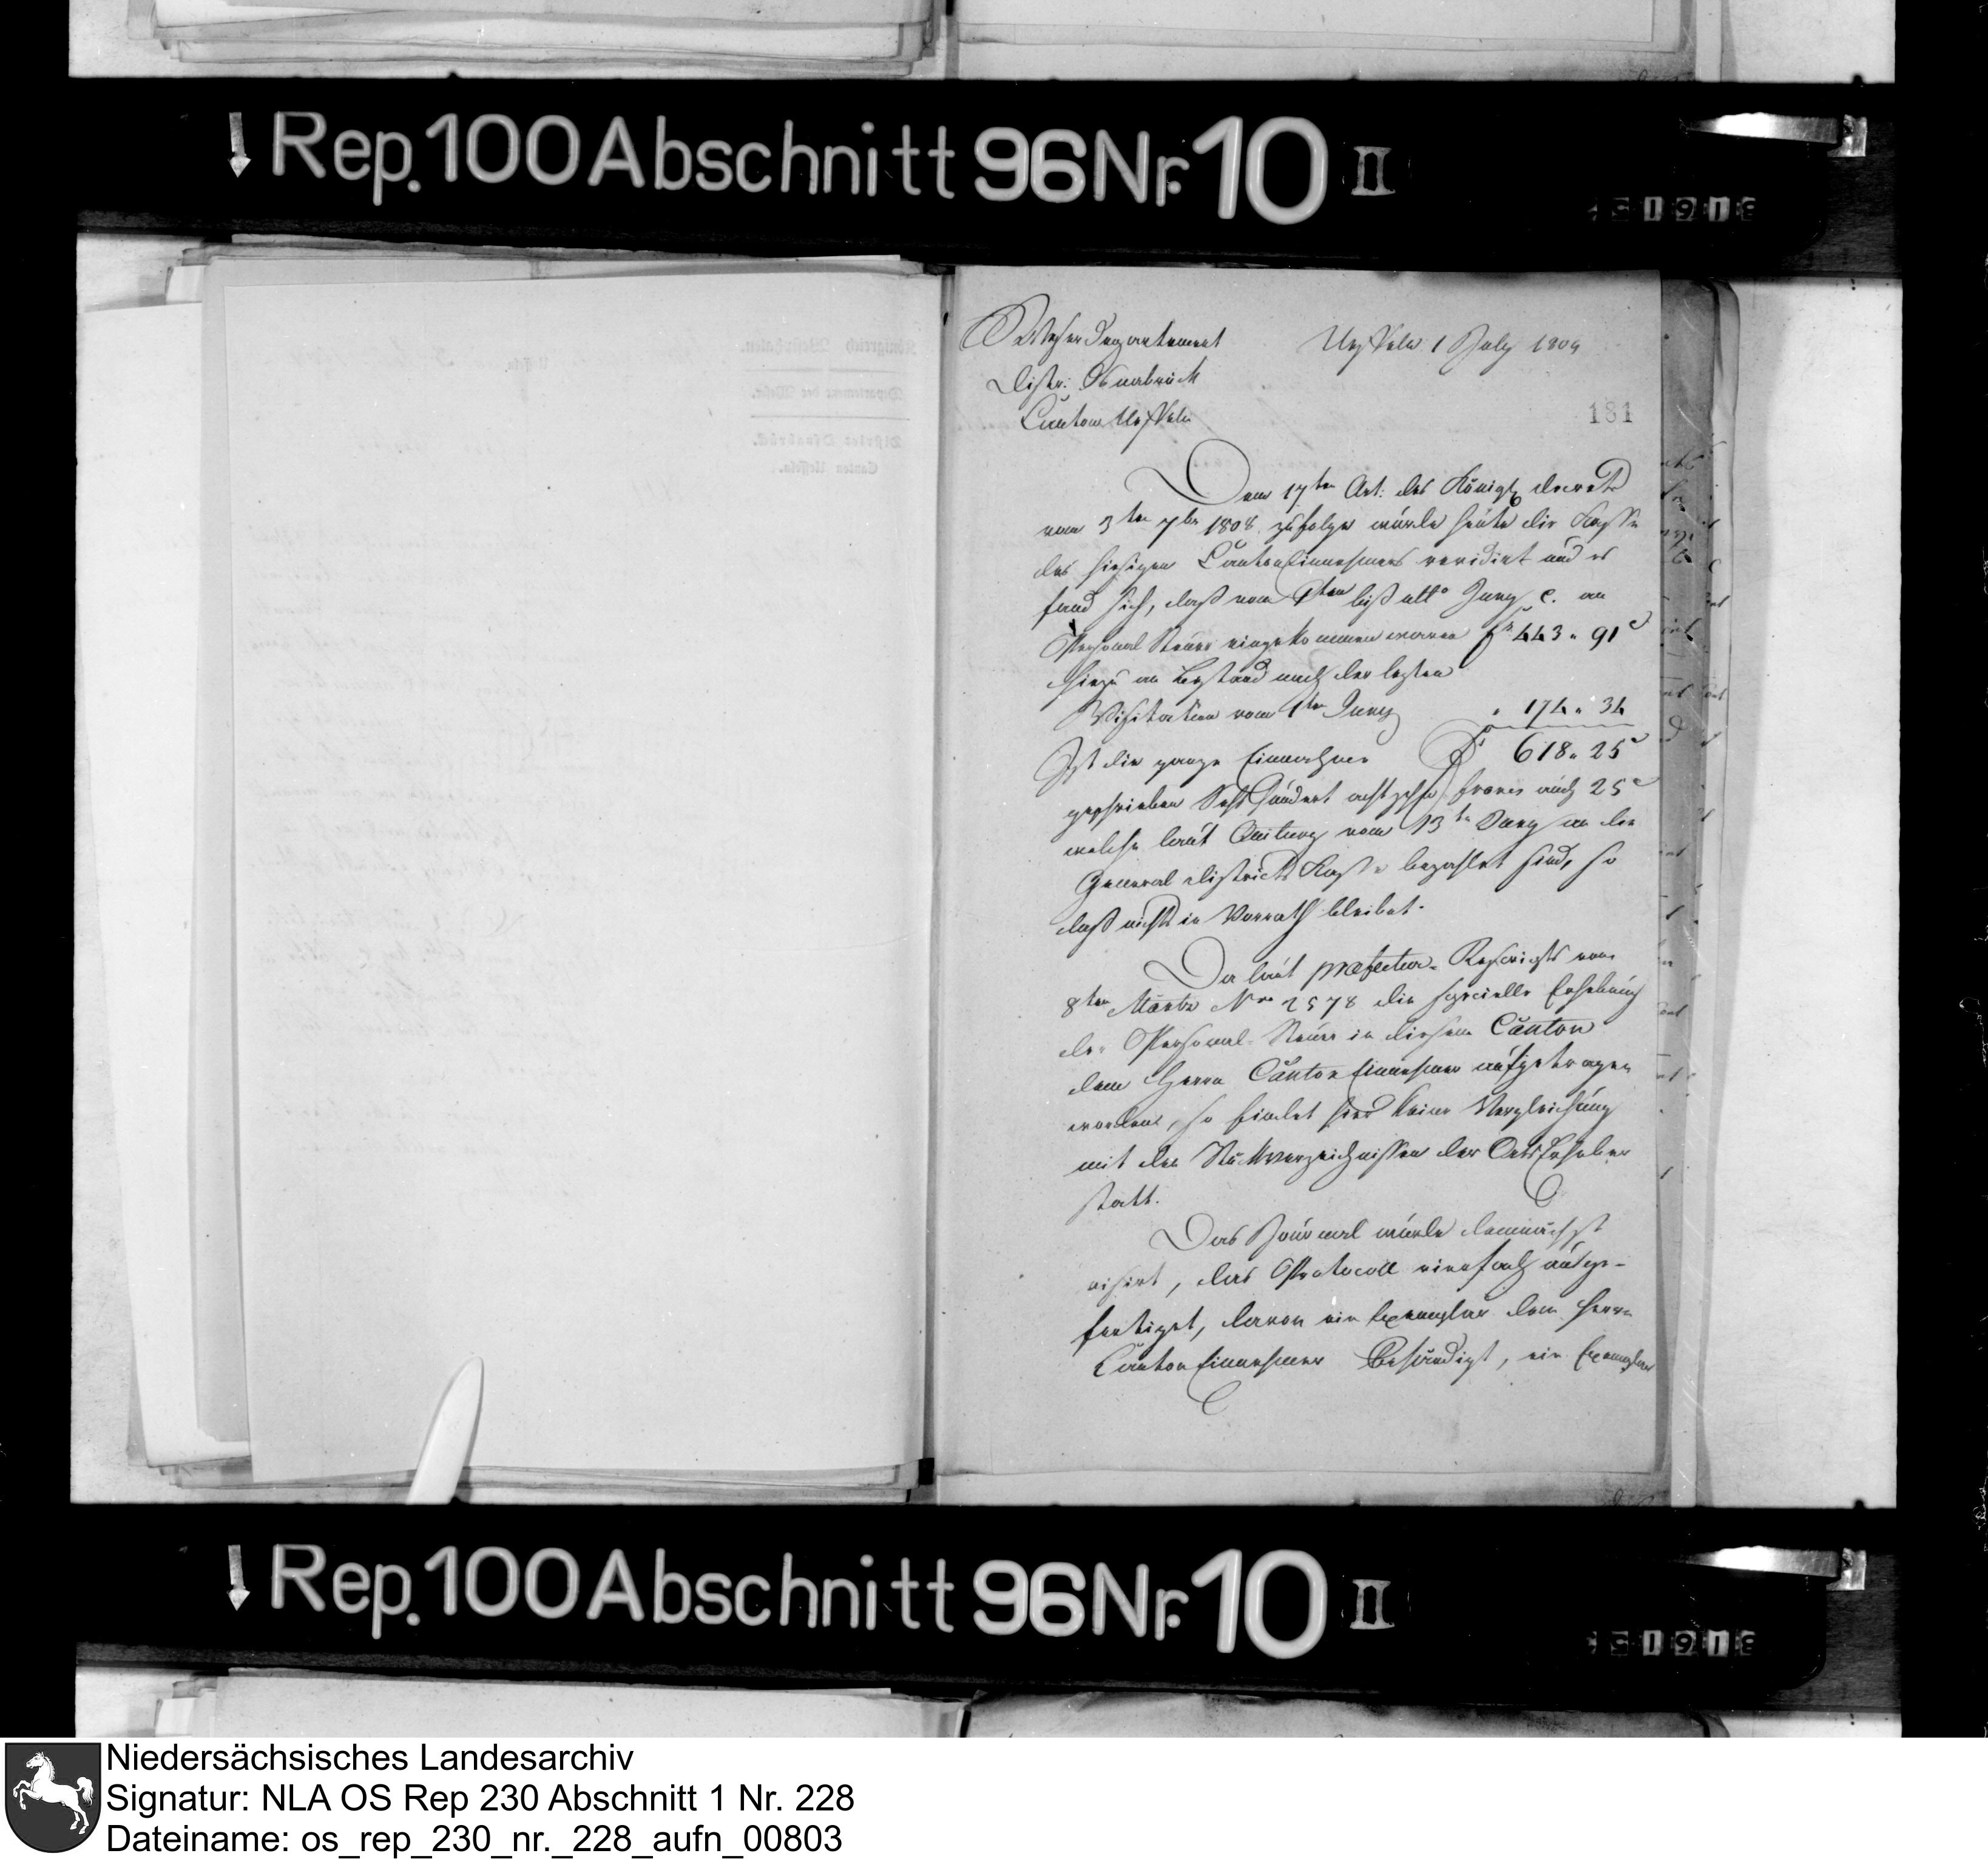 Rep. 100 Abschnitt 96 Nr. 10 II
Königreich Westphalen.
Departement der Weser.
District Osnabrück.
Canton Ueffeln.
WeserDepartement
Ueffeln 1 July 1809
Distr. Osnabrück
Canton Ueffeln
181
Dem 17ten Art: des Königl decrets
vom 3ten 7br 1808 zufolge wurde heute die Kasse
des hiesigen CantonEinnehmers revidirt und es
fand sich, daß vom 1ten biß ulto Juny c. an
Personal Steuer eingekommen waren fr 443 " 91 c
hiezu an Bestand nach der lezten
Visitation vom 1ten Juny " 174 " 34
Ist die ganze Einnahme fr 618 " 25 c
geschrieben Sechshundert achtzehn francs auch 25 c
welche laut Quitung vom 13ten Juny an die
General districts Kasse bezahlet sind, so
daß nichts in Vorrath bleibet.
Da laut præfectur- Rescripts vom
8ten Märtz Nro 2578 die specielle Erhebung
der Personal-Steuer in diesem Canton
dem Herrn Canton Einnehmer aufgetragen
worden, so findet hier keine Vergleichung
mit den Stückverzeichnissen der OrtsErheber
statt.
Das Journal wurde demnächst
visirt, das Protocoll vierfach ausge-
fertiget, davon ein Exemplar dem Herrn
Canton Einnehmer behändigt, ein Exemplar
Rep. 100 Abschnitt 96 Nr. 10 II
Niedersächsisches Landesarchiv
Signatur: NLA OS Rep 230 Abschnitt 1 Nr. 228
Dateiname: os_rep_230_nr._228_aufn_00803